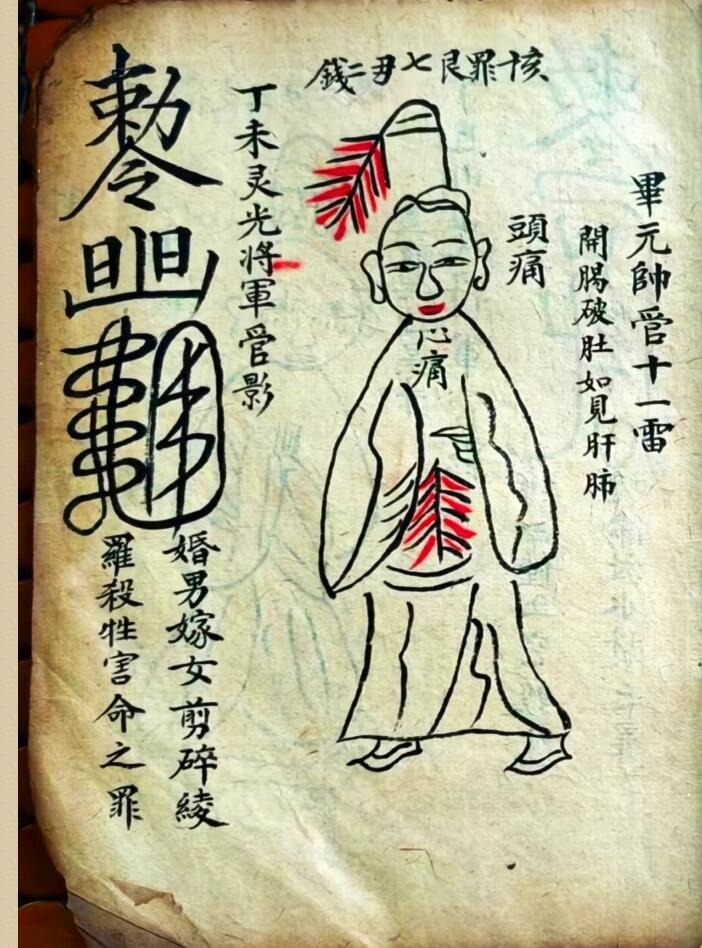 亥罪艮七丑二錢
畢元帥管十一雷
開腸破肚如見肝肺
頭痛
心痛
丁未灵光將軍管影
敕令
婚男嫁女剪碎綾
羅殺牲害命之罪